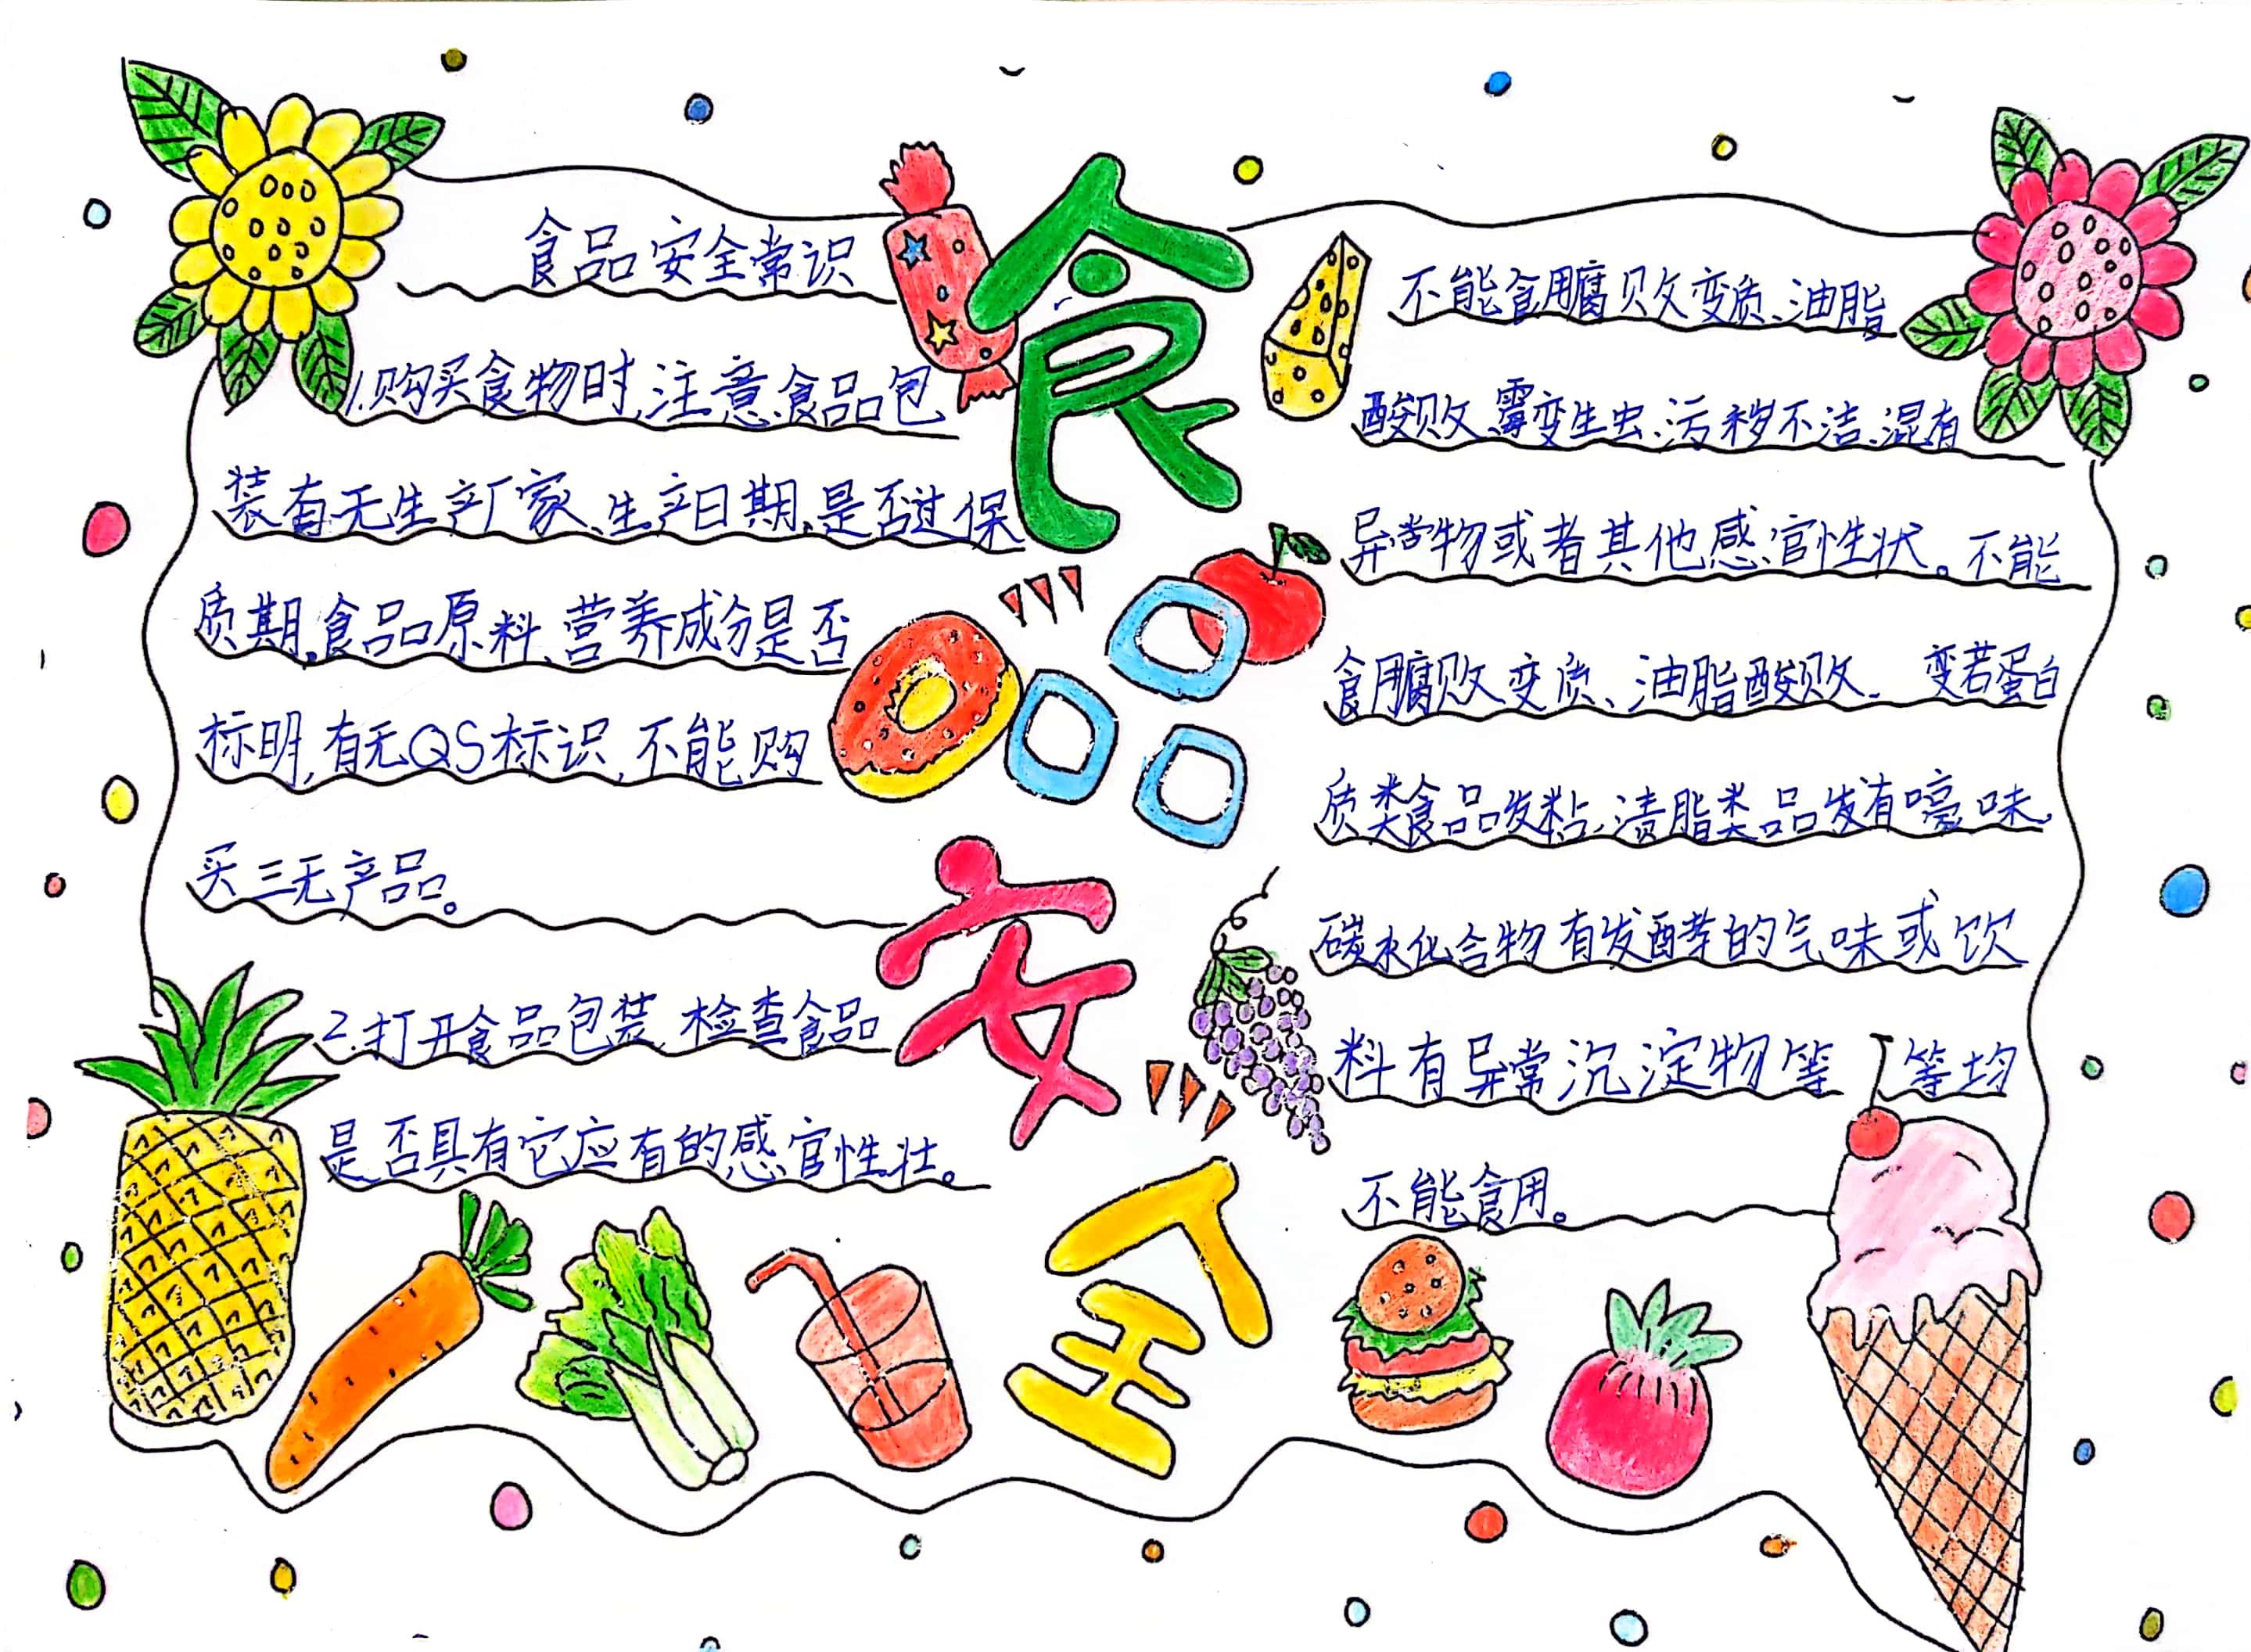 食品安全
食品安全常识
1.购买食物时,注意食品包
装有无生产厂家、生产日期,是否过保
质期,食品原料、营养成分是否
标明,有无QS标识,不能购
买三无产品。
2.打开食品包装,检查食品
是否具有它应有的感官性壮。
不能食用腐败变质、油脂
酸败、霉变生虫、污秽不洁、混有
异常物或者其他感官性状。不能
食用腐败变质、油脂酸败、变若蛋白
质类食品发粘,渍脂类品发有嚎味,
碳水化合物有发酵的气味或饮
料有异常沉淀物等 等均
不能食用。